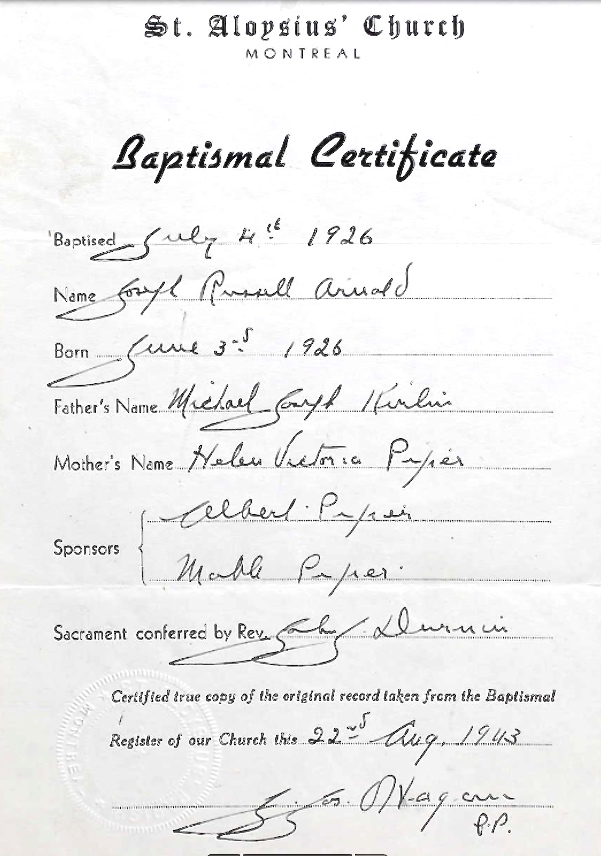 St. Aloysius' Church
MONTREAL
Baptismal Certificate
Baptised July 4th 1926
Name Joseph Russell Arnold
Born June 3rd 1926
Father's Name Michael Joseph Kirlin
Mother's Name Helen Victoria Piper
Albert Piper
Sponsors
Mable Piper
Sacrament conferred by Rev. Durnin
Certified true copy of the original record taken from the Baptismal
Register of our Church this 22nd Aug, 1943
Jos.
P.P.